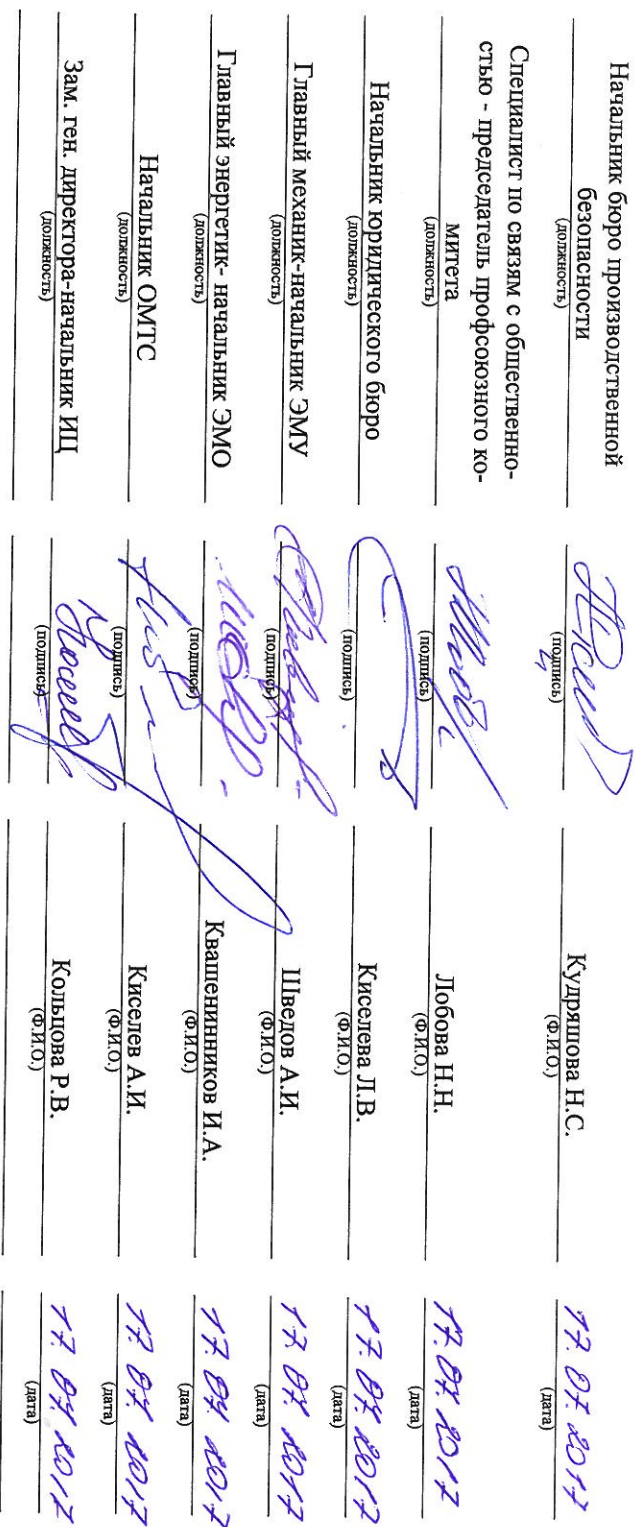 Начальник бюро производственной
безопасности
(должность) (подпись) Кудряшова Н.С. (Ф.И.О.) 17.07.2017 (дата)
Специалист по связям с общественно-
стью - председатель профсоюзного ко-
митета
(должность) (подпись) Лобова Н.Н. (Ф.И.О.) 17.07.2017 (дата)
Начальник юридического бюро (должность) (подпись) Киселева Л.В. (Ф.И.О.) 17.07.2017 (дата)
Главный механик-начальник ЭМУ (должность) (подпись) Шведов А.И. (Ф.И.О.) 17.07.2017 (дата)
Главный энергетик- начальник ЭМО (должность) (подпись) Квашенинников И.А. (Ф.И.О.) 17.07.2017 (дата)
Начальник ОМТС (должность) (подпись) Киселев А.И. (Ф.И.О.) 17.07.2017 (дата)
Зам. ген. директора-начальник ИЦ (должность) (подпись) Кольцова Р.В. (Ф.И.О.) 17.07.2017 (дата)